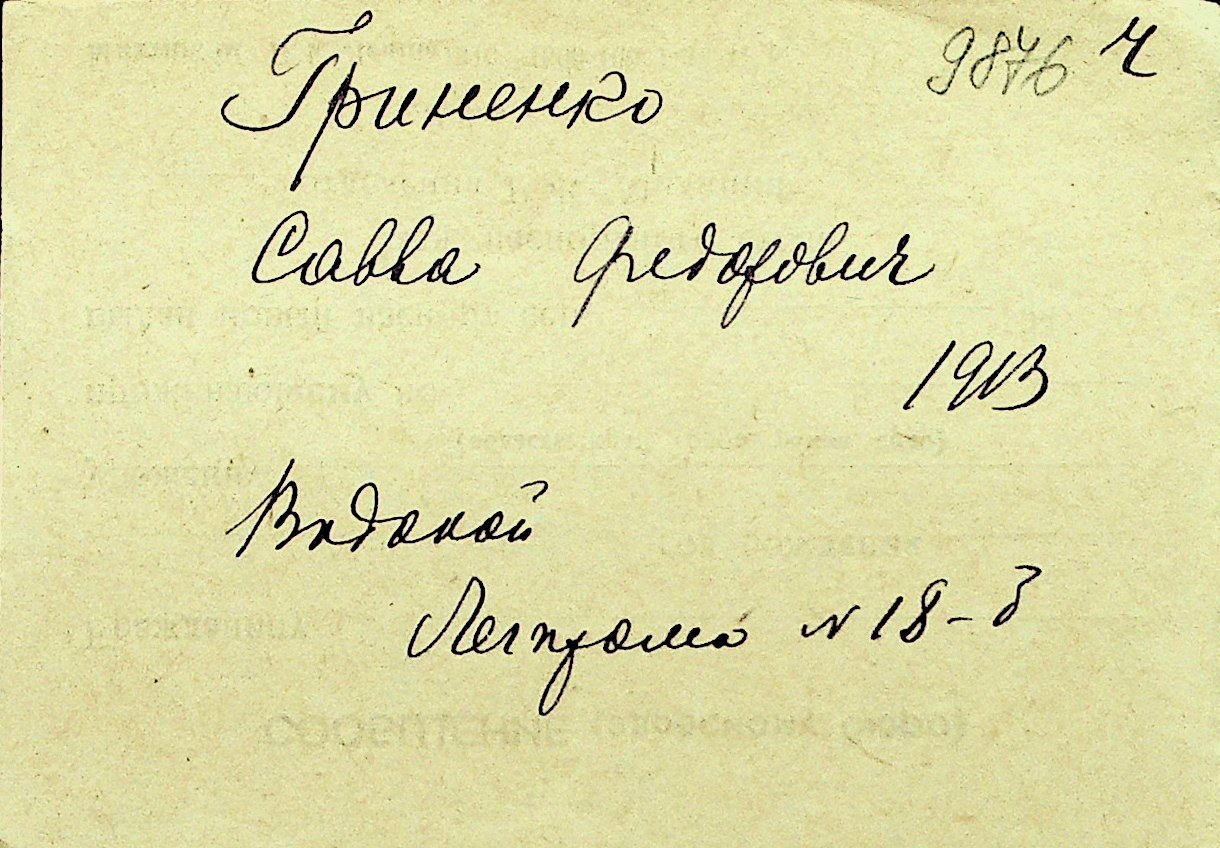 9876 ч
Гриненко
Савва Федорович
1913
Водопой
Легпрома № 18-б